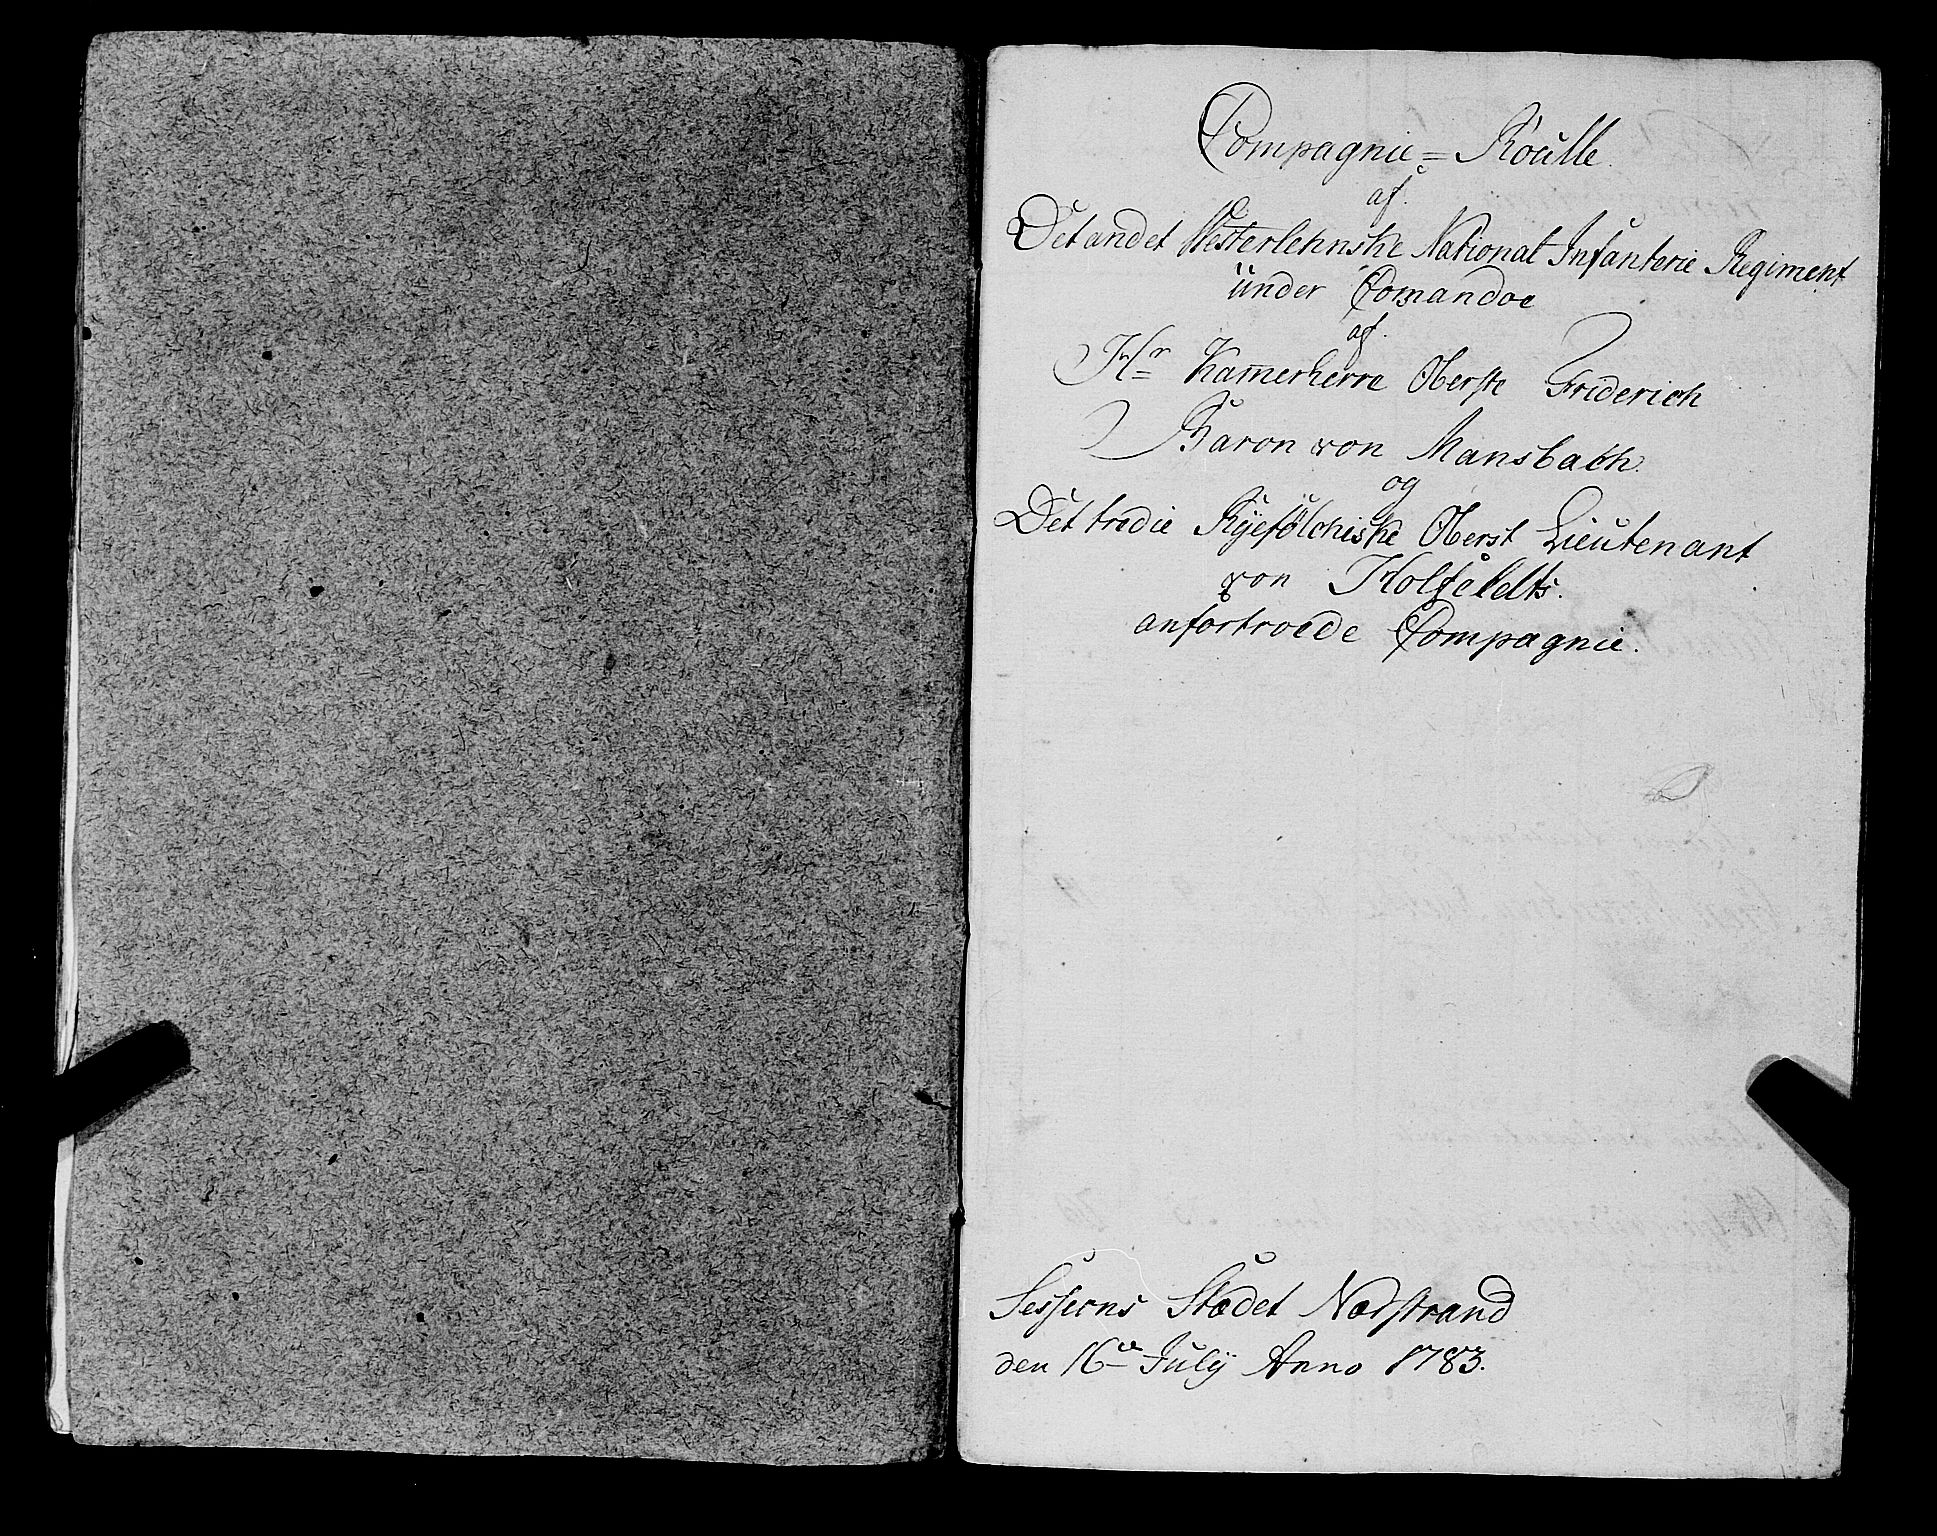 Compagnie = Roulle
af.
Det andet Westerlehnske National Infanterie Regiment
under Comandoe
af.
Hr Kamerherre Oberste Friderich
Baron von Mansbach.
og
Det tredie Ryefölchiske Oberst Lieutenant
von Holfeldts.
anfortroede Compagnie.
Sessions Stædet Nærstrand
den 16de July Anno 1783.